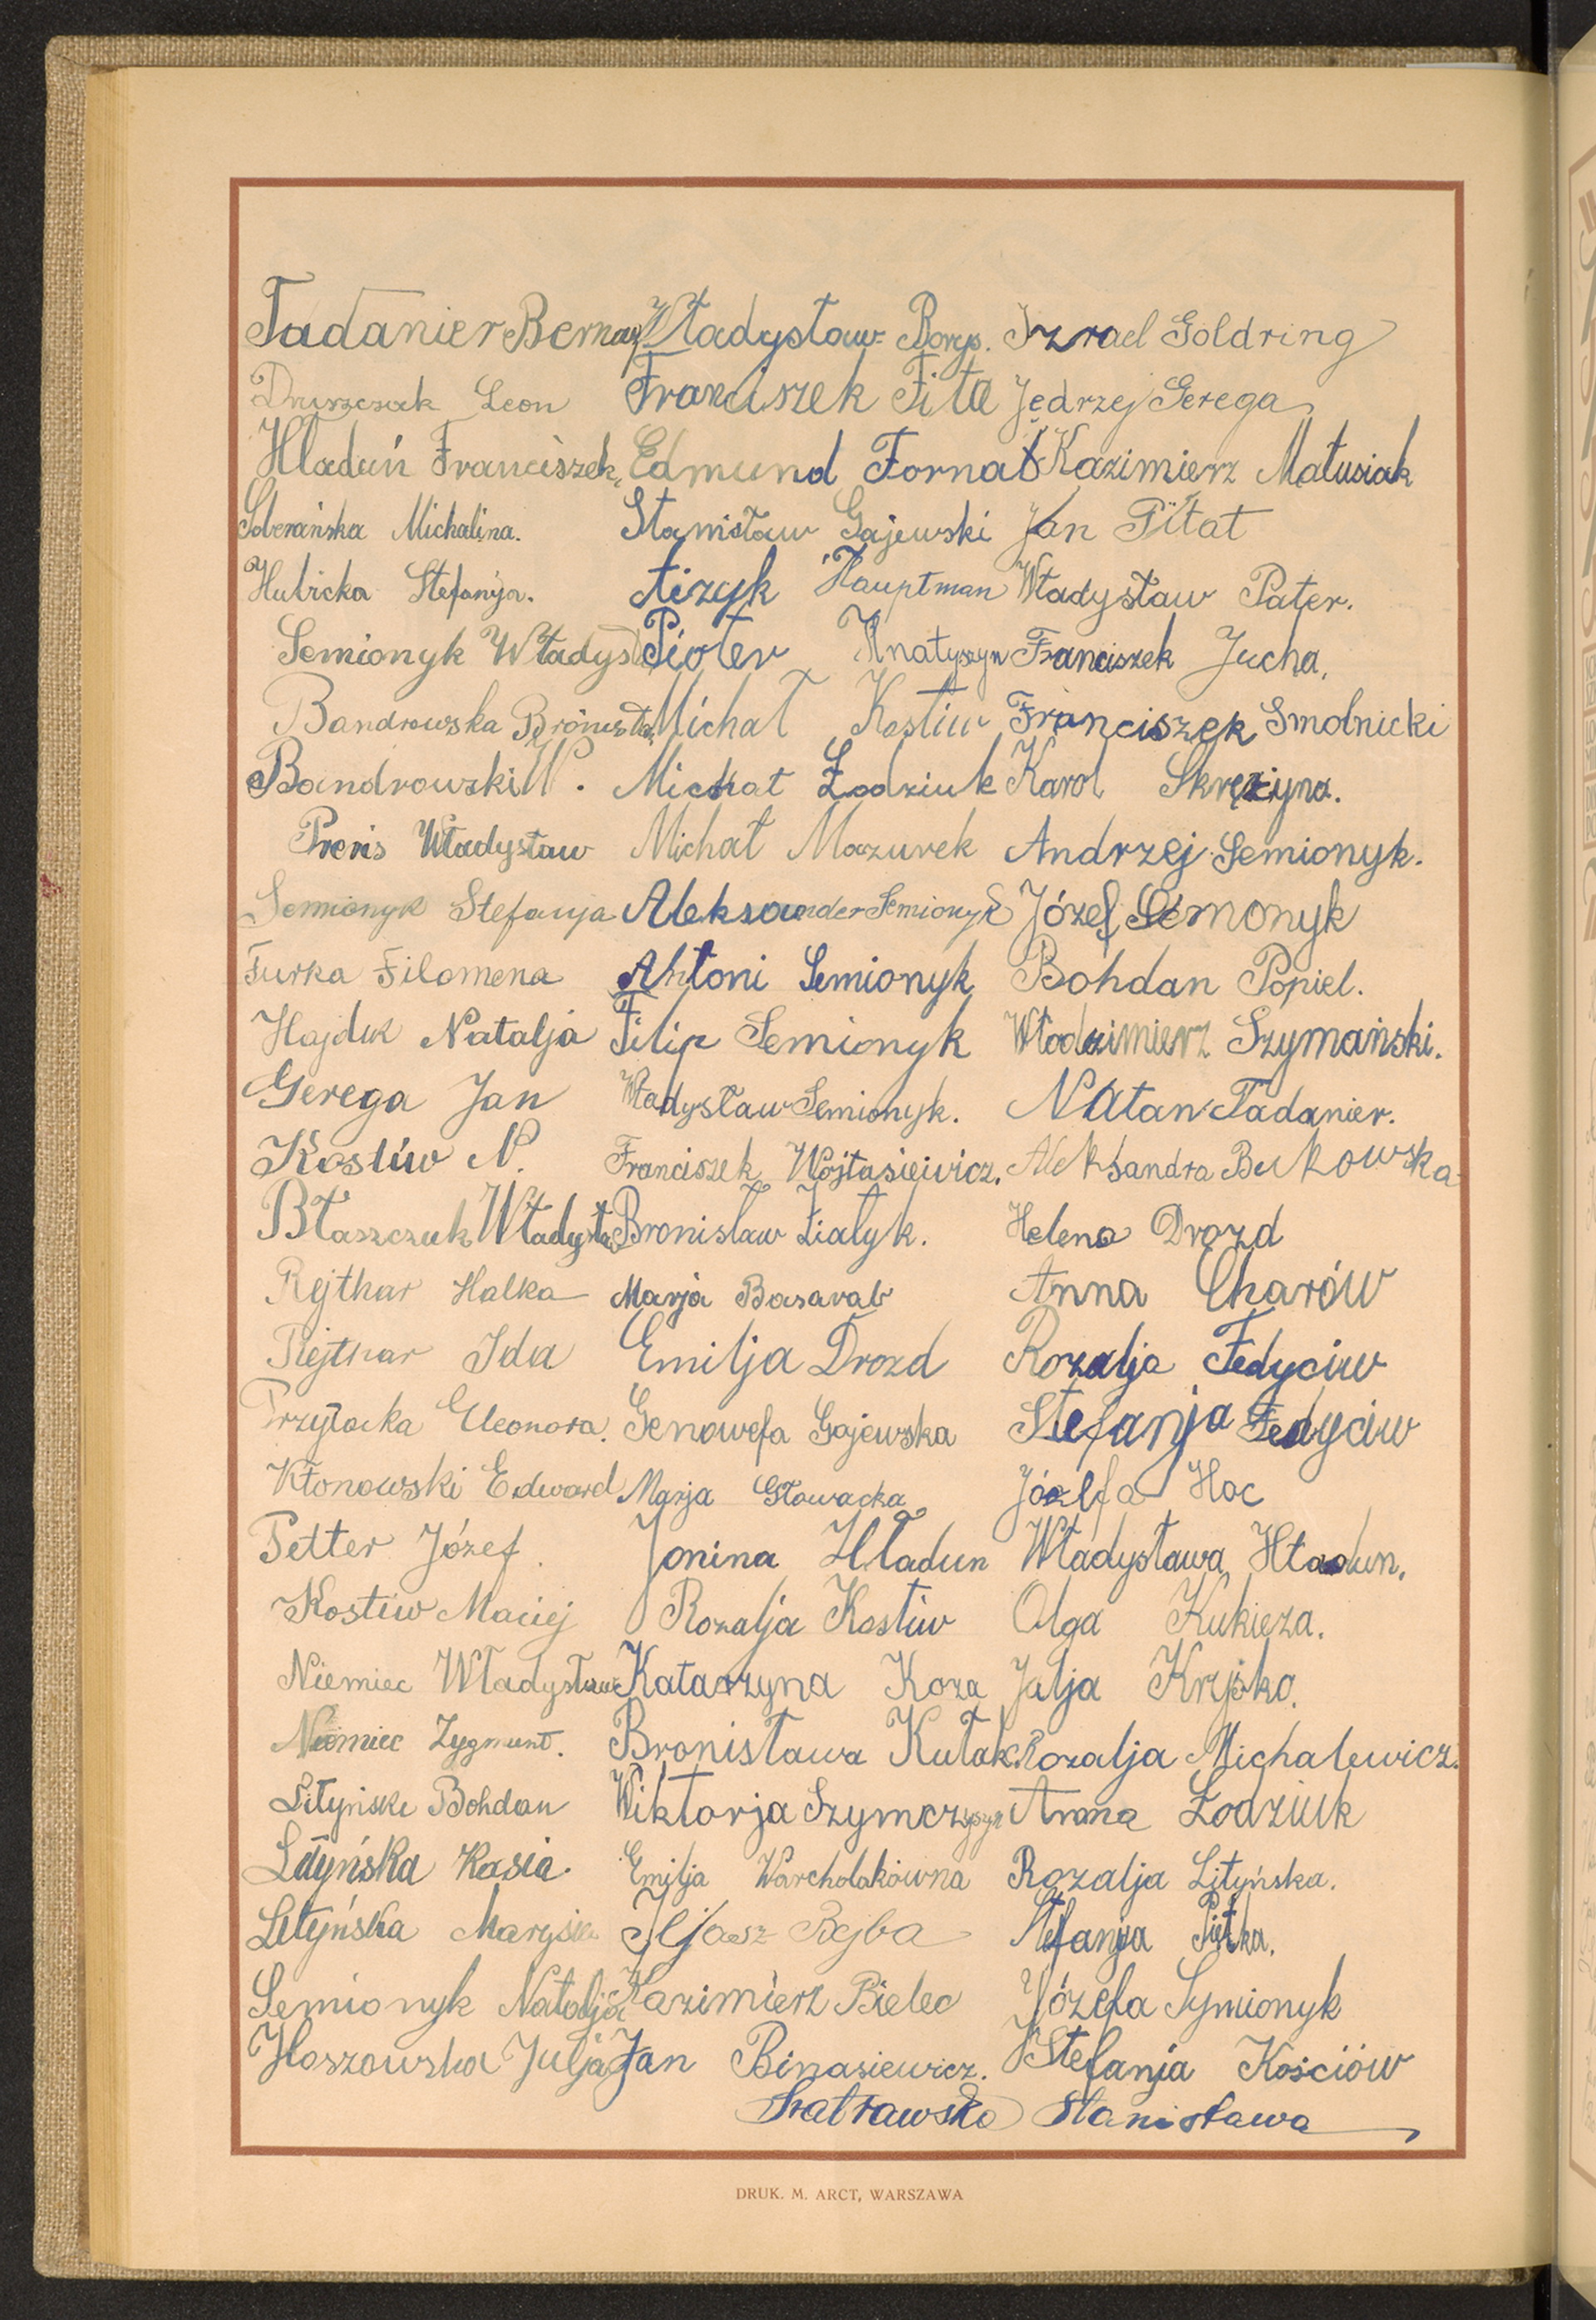 Tadanier Bernard Władysław Borys. Izrael Goldring
Druszczak Leon Franciszek Fita Jędrzej Gerega
Hładuń Franciszek, Edmund Fornal Kazimierz Matusiak
Soberańska Michalina. Stanisław Gajewski Jan Piłat
Hubicka Stefanja. Aizyk Hauptman Władysław Pater.
Semionyk Władysł Pioter Hnatyszyn Franciszek Jucha.
Bandrowska Bronisła Michał Kostiw Franciszek Smolnicki
Bandrowski W. Michał Łodziuk Karol Skrężyna.
Preis Władysław Michał Mazurek Andrzej Semionyk.
Semionyk Stefanja Aleksander Semionyk Józef Semonyk
Furka Filomena Antoni Semionyk Bohdan Popiel.
Hajduk Natalja Filip Semionyk Włodzimierz Szymański.
Gerega Jan Władysław Semionyk. Natan Tadanier.
Kostiw N. Franciszek Wojtasiewicz. Aleksandra Bukowska
Błaszczuk Władysław Bronisław Ziałyk. Helena Drozd
Rejthar Halka Marja Basarab Anna Charów
Rejthar Ida Emilja Drozd Rozalja Fedyciw
Przyłacka Eleonora. Genowefa Gajewska Stefanja Fedyciw
Kłonowski Edward Marja Głowacka Józefa Hoc
Petter Józef. Janina Hładun Władysława Hładun.
Kostiw Maciej Rozalja Kostiw Olga Kukieza.
Niemiec Władysław Katarzyna Koza Julja Krysko.
Niemiec Zygmunt. Bronisława Kułak. Rozalja Michalewicz.
Lityński Bohdan Wiktorja Szymczyszyn Anna Łodziuk
Lityńska Kasia. Emilja Warcholakówna Rozalja Lityńska.
Lityńska Marysia Iljasz Bejba Stefanja Piętka.
Semionyk Natalja Kazimierz Bielec Józefa Symionyk
Hoszowska Julja Jan Binasiewicz. Stefanja Kościów
Stanisława
DRUK. M. ARCT, WARSZAWA